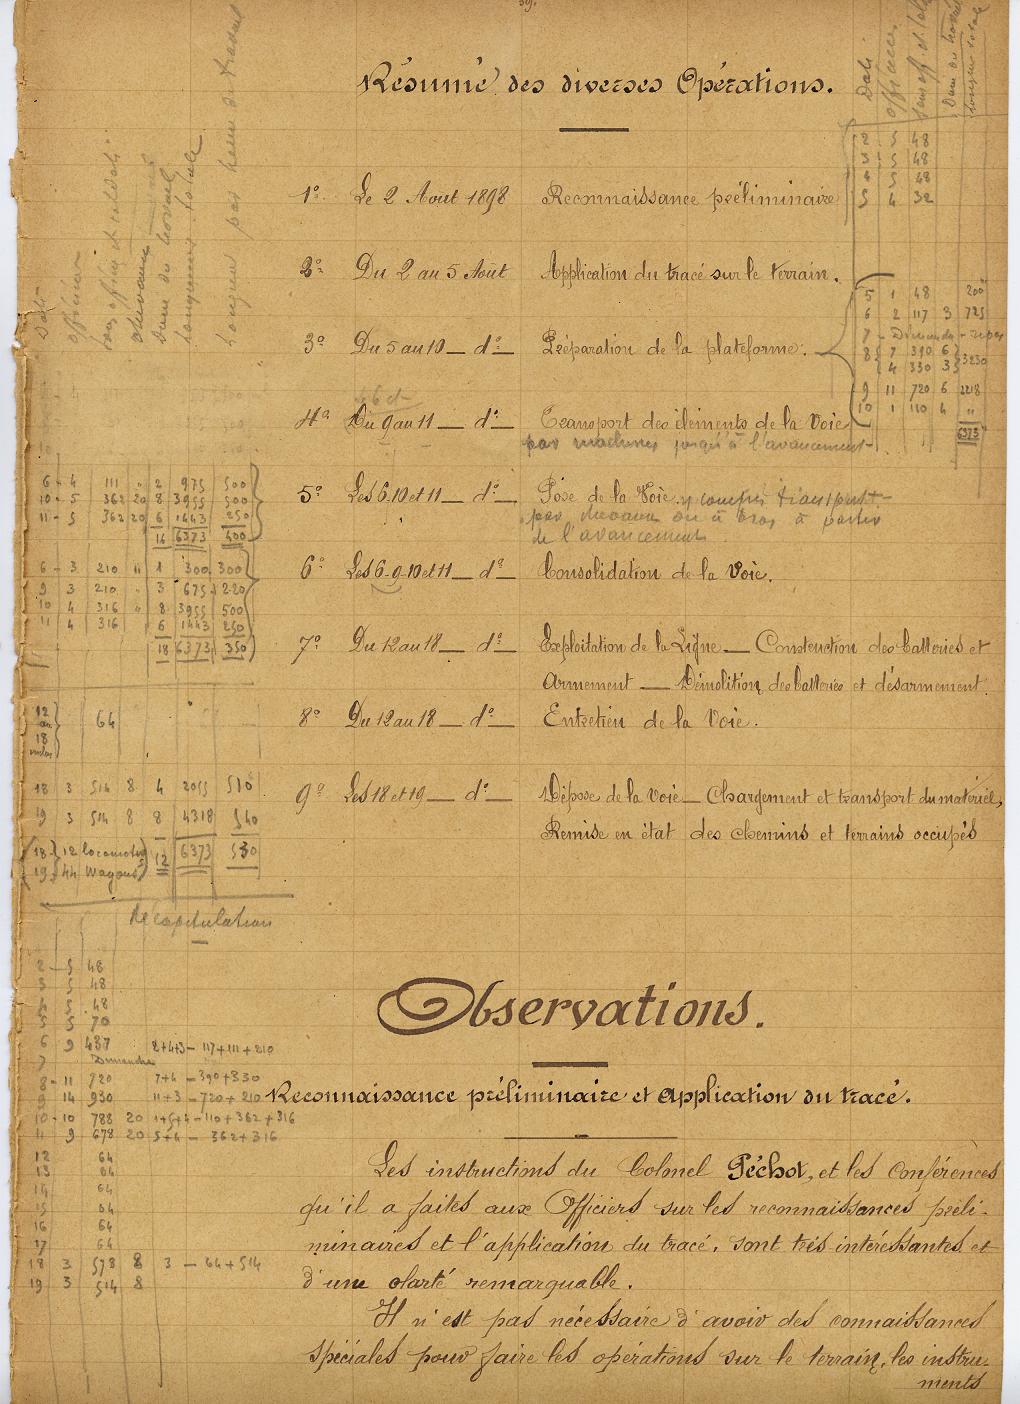 39.
Résumé des diverses Opérations.
1º Le 2 Août 1898 Reconnaissance préliminaire
2º Du 2 au 5 Août Application du tracé sur le terrain.
3º Du 5 au 10 — dº — Préparation de la plateforme.
4º Du 9 au 11 — dº — Transport des éléments de la Voie
par machines jusqu'à l'avancement
5º Les 6.10 et 11 — dº — Pose de la Voie. y compris transport
par chevaux ou à bras à partir
de l'avancement.
6º Les 6-9-10 et 11 — dº — Consolidation de la Voie.
7º Du 12 au 18 — dº — Exploitation de la Ligne — Construction des batteries et
Armement — Démolition des batteries et désarmement.
8º Du 12 au 18 — dº — Entretien de la Voie.
9º Les 18 et 19 — dº — Dépose de la Voie — Chargement et transport du matériel,
Remise en état des chemins et terrains occupés
2 5 48
3 5 48
4 5 48
5 4 32
5 1 48 200
6 2 117 3 725
7 - Dimanche - repos
8 7 390 6 3230
4 330 3
9 11 720 6 2218
10 1 110 4 "
6373
6 - 4 111 " 2 975 500
10 - 5 362 20 8 3955 500
11 - 5 362 20 6 1443 250
16 6373 400
6 - 3 210 " 1 300 300
9 3 210 " 3 675 220
10 4 316 " 8 3955 500
11 4 316 6 1443 250
18 6373 350
12
au 64
18
18 3 514 8 4 2055 510
19 3 514 8 8 4318 540
18 12 locomotives 12 6373 530
19 44 Wagons
Récapitulation
2 - 5 48
3 5 48
4 5 48
5 5 70
6 9 437 2+4+3 - 117+111+210
7 Dimanche
8 - 11 720 7+4 - 390+330
9 - 14 930 11+3 - 720+210
10 - 10 788 20 1+5+4 - 110+362+316
11 9 678 20 5+4 - 362+316
12 64
13 64
14 64
15 64
16 64
17 64
18 3 578 8 3 - 64+514
19 3 514 8
Observations.
Reconnaissance préliminaire et application du tracé.
Les instructions du Colonel Péchot, et les conférences
qu'il a faites aux Officiers sur les reconnaissances préli-
minaires et l'application du tracé, sont très intéressantes et
d'une clarté remarquable.
Il n'est pas nécessaire d'avoir des connaissances
spéciales pour faire les opérations sur le terrain, les instru-
ments